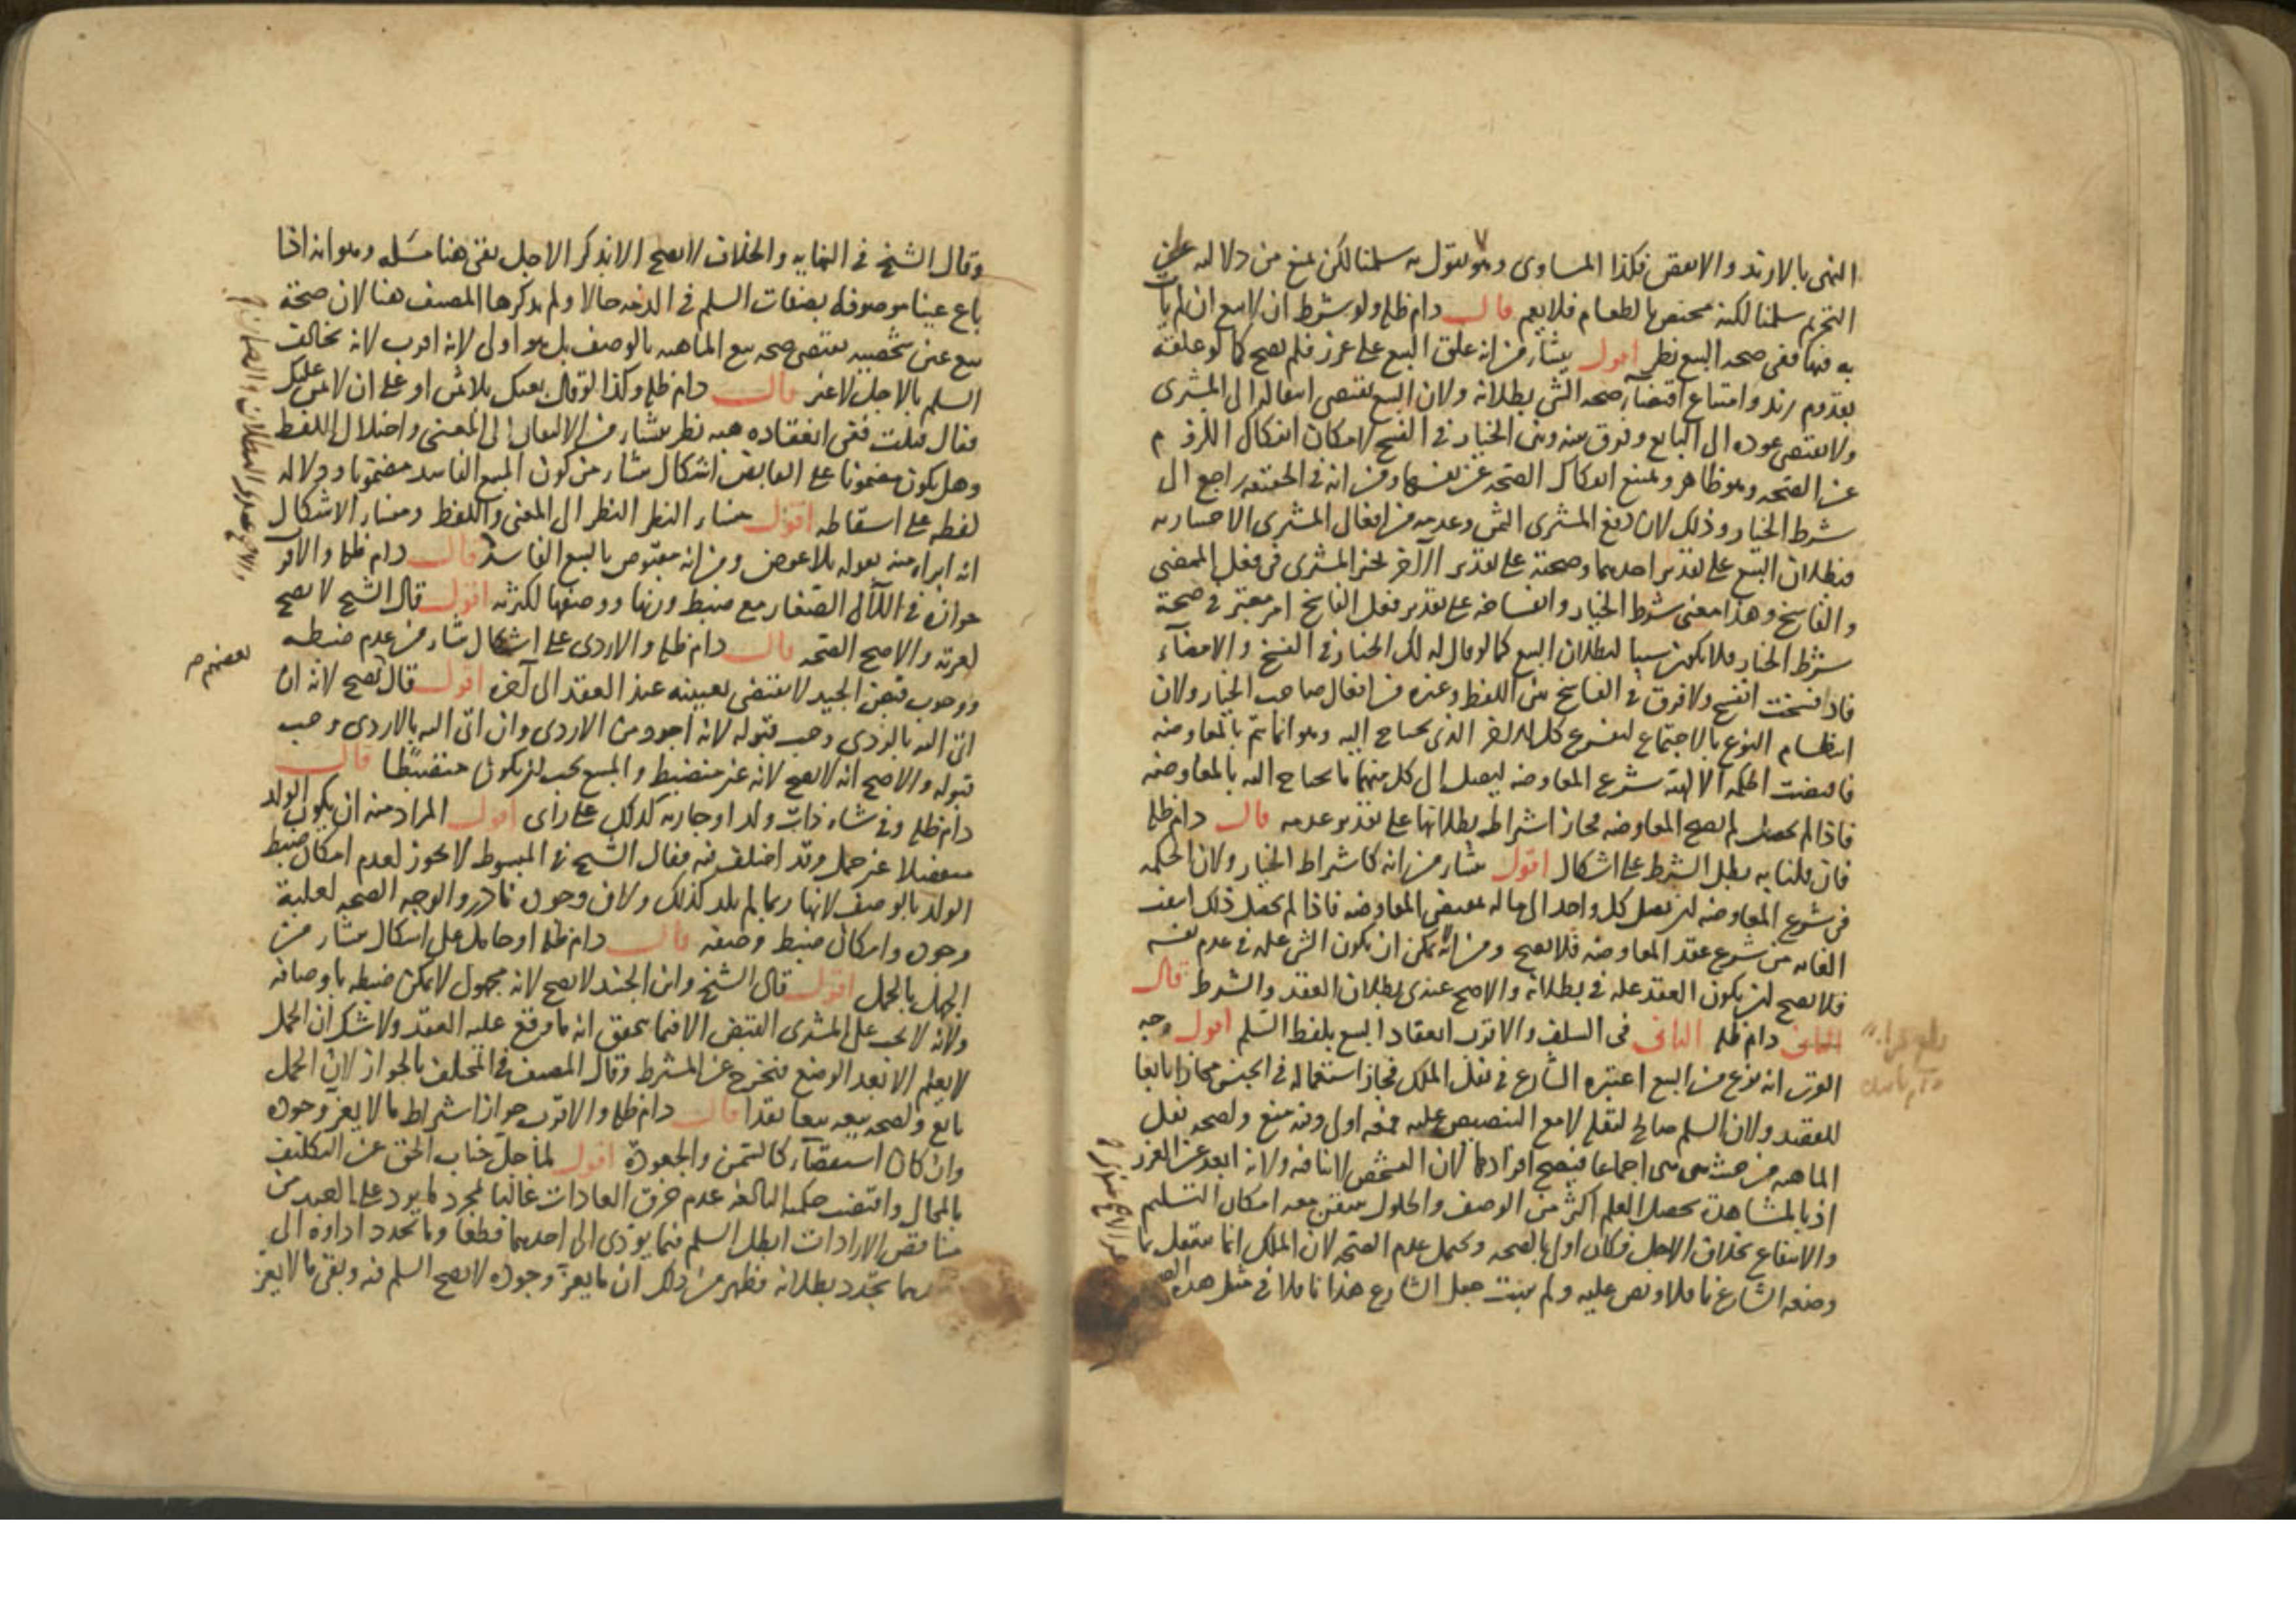 النهى بالازيد والانقص فكذا المساوى وهو يقول به سلمنا لكن نمنع من دلالته على
التحريم سلمنا لكنه مختص بالطعام فلا يعم قال دام ظله ولو شرط ان لا بيع ان لم يات
به فيها ففى صحة البيع نظر اقول ينشأ من انه علق البيع على غرر فلم يصح كما لو علقه
بقدوم زيد وامتناع اقتضاء صحة الشى بطلانه ولان البيع يقتضى انتقاله الى المشترى
ولا يقتضى عوده الى البايع وفرق بينه وبين الخيار فى الفسخ لامكان انفكاك اللزوم
عن الصحة وهو ظاهر ويمتنع انفكاك الصحة عن نفسها ومن انه فى الحقيقة راجع الى
شرط الخيار وذلك لان دفع المشترى الثمن وعدمه من افعال المشترى الاختيارية
فبطلان البيع على تقدير احدهما وصحته على تقدير الآخر تخير المشترى فى فعل الممضى
والفاسخ وهذا معنى شرط الخيار وانفساخه على تقدير فعل الفاسخ امر معتبر فى صحة
شرط الخيار فلا يكون سببا لبطلان البيع كما لو قال له لك الخيار فى الفسخ والامضاء
فاذا فسخت انفسخ ولا فرق فى الفاسخ بين اللفظ وغيره من افعال صاحب الخيار ولان
انتظام النوع بالاجتماع ليفرغ كل للآخر الذى يحتاج اليه وهو انما يتم بالمعاوضة
فاقتضت الحكمة الالهية شرع المعاوضة ليصل الى كل منهما ما يحتاج اليه بالمعاوضة
فاذا لم يحصل لم يصح المعاوضة فجاز اشتراطه بطلانها على تقدير عدمه قال دام ظله
فان قلنا به بطل الشرط على اشكال اقول ينشأ من انه كاشتراط الخيار ولان الحكمة
فى شرع المعاوضة ان يصل كل واحد الى ماله بمقتضى المعاوضة فاذا لم يحصل ذلك انتفت
الغاية من شرع عقد المعاوضة فلا يصح ومن انه لا يمكن ان يكون الشى علة فى عدم نفسه
فلا يصح ان يكون العقد علة فى بطلانه والاصح عندى بطلان العقد والشرط قال
دام ظله الثانى فى السلف والاقرب انعقاد البيع بلفظ السلم اقول وجه
القرب انه نوع من البيع اعتبره الشارع فى نقل الملك فجاز استعماله فى الجنس مجازا تابعا
للقصد ولان السلم صالح لنقله لامع التنصيص عليه فمعه اولى وفيه منع ولصحة نقل
الماهية من حيث هى هى اجماعا فيصح افرادها لان التشخص لا ينافيه ولانه ابعد عن الغرر
اذ بالمشاهدة يحصل العلم اكثر من الوصف والحلول متيقن معه امكان التسليم
والانتفاع بخلاف الاجل فكان اولى بالصحة ويحتمل عدم الصحة لان الملك انما ينتقل بما
وضعه الشارع ناقلا ونص عليه ولم يثبت جعل الشارع هذا ناقلا فى مثل هذه
وقال الشيخ فى النهايه والخلاف لا يصح الا بذكر الاجل بقى هنا مسئله وهو انه اذا
باع عينا موصوفة بصفات السلم فى الذمة حالا ولم يذكرها المصنف هنا لان صحة
بيع عين شخصيه تقتضى صحة بيع الماهيه بالوصف بل هو اولى لانه اقرب لانه يخالف
السلم بالاجل لا غير قال دام ظله وكذا لو قال بعتك بلا ثمن او على ان لا ثمن عليك
فقال قبلت ففى انعقاده هبة نظر ينشأ من الالتفات الى المعنى واختلال اللفظ
وهل يكون مضمونا على القابض اشكال ينشأ من كون المبيع الفاسد مضمونا ودلالة
لفظه على اسقاطه اقول منشأ النظر النظر الى المعنى واللفظ ومنشأ الاشكال
انه ابراء منه بقوله بلا عوض ومن انه مقبوض بالبيع الفاسد قال دام ظله والاقرب
جوازه فى اللآلى الصغار مع ضبط وزنها ووصفها لكثرته اقول قال الشيخ لا يصح
لغرته والاصح الصحة قال دام ظله والاردى على اشكال ينشأ من عدم ضبطه
ووجوب قبض الجيد لا يقتضى تعيينه عند العقد الى آخره اقول قال بعضهم يصح لانه ان
اتى اليه بالردى وجب قبوله لانه اجود من الاردى وان اتى اليه بالاردى وجب
قبوله والاصح انه لا يصح لانه غير منضبط والمبيع يجب ان يكون منضبطا قال
دام ظله وفى شاة ذات ولد او جارية كذلك على راى اقول المراد منه ان يكون الولد
منفصلا غير حمل وقد اختلف فيه فقال الشيخ فى المبسوط لا يجوز لعدم امكان ضبط
الولد بالوصف لانها ربما لم يلد كذلك ولان وجوده نادر والوجه الصحة لغلبة
وجوده وامكان ضبط وصفه قال دام ظله او حامل على اشكال ينشأ من
الجهل بالحمل اقول قال الشيخ وابن الجنيد لا يصح لانه مجهول لا يمكن ضبطه باوصافه
ولانه لا يجب على المشترى القبض الا فيما يتحقق انه ما وقع عليه العقد ولا شك ان الحمل
لا يعلم الا بعد الوضع فيخرج عن المشترط وقال المصنف فى المختلف بالجواز لان الحمل
تابع ولصحة بيعه بيعا نقدا قال دام ظله والاقرب جواز اشتراط ما لا يعز وجوده
وان كان استقصاء كالسمن والجعودة اقول لما جل جناب الحق عن التكليف
بالمحال واقتضت حكمته البالغة عدم خرق العادات غالبا لمجرد ما يرد على العبد من
متناقض الارادات ابطل السلم فيما يؤدى الى احدهما قطعا وما تجدد اداؤه الى
يتجدد بطلانه فظهر من ذلك ان ما يعز وجوده لا يصح السلم فيه وبقى ما لا يعز